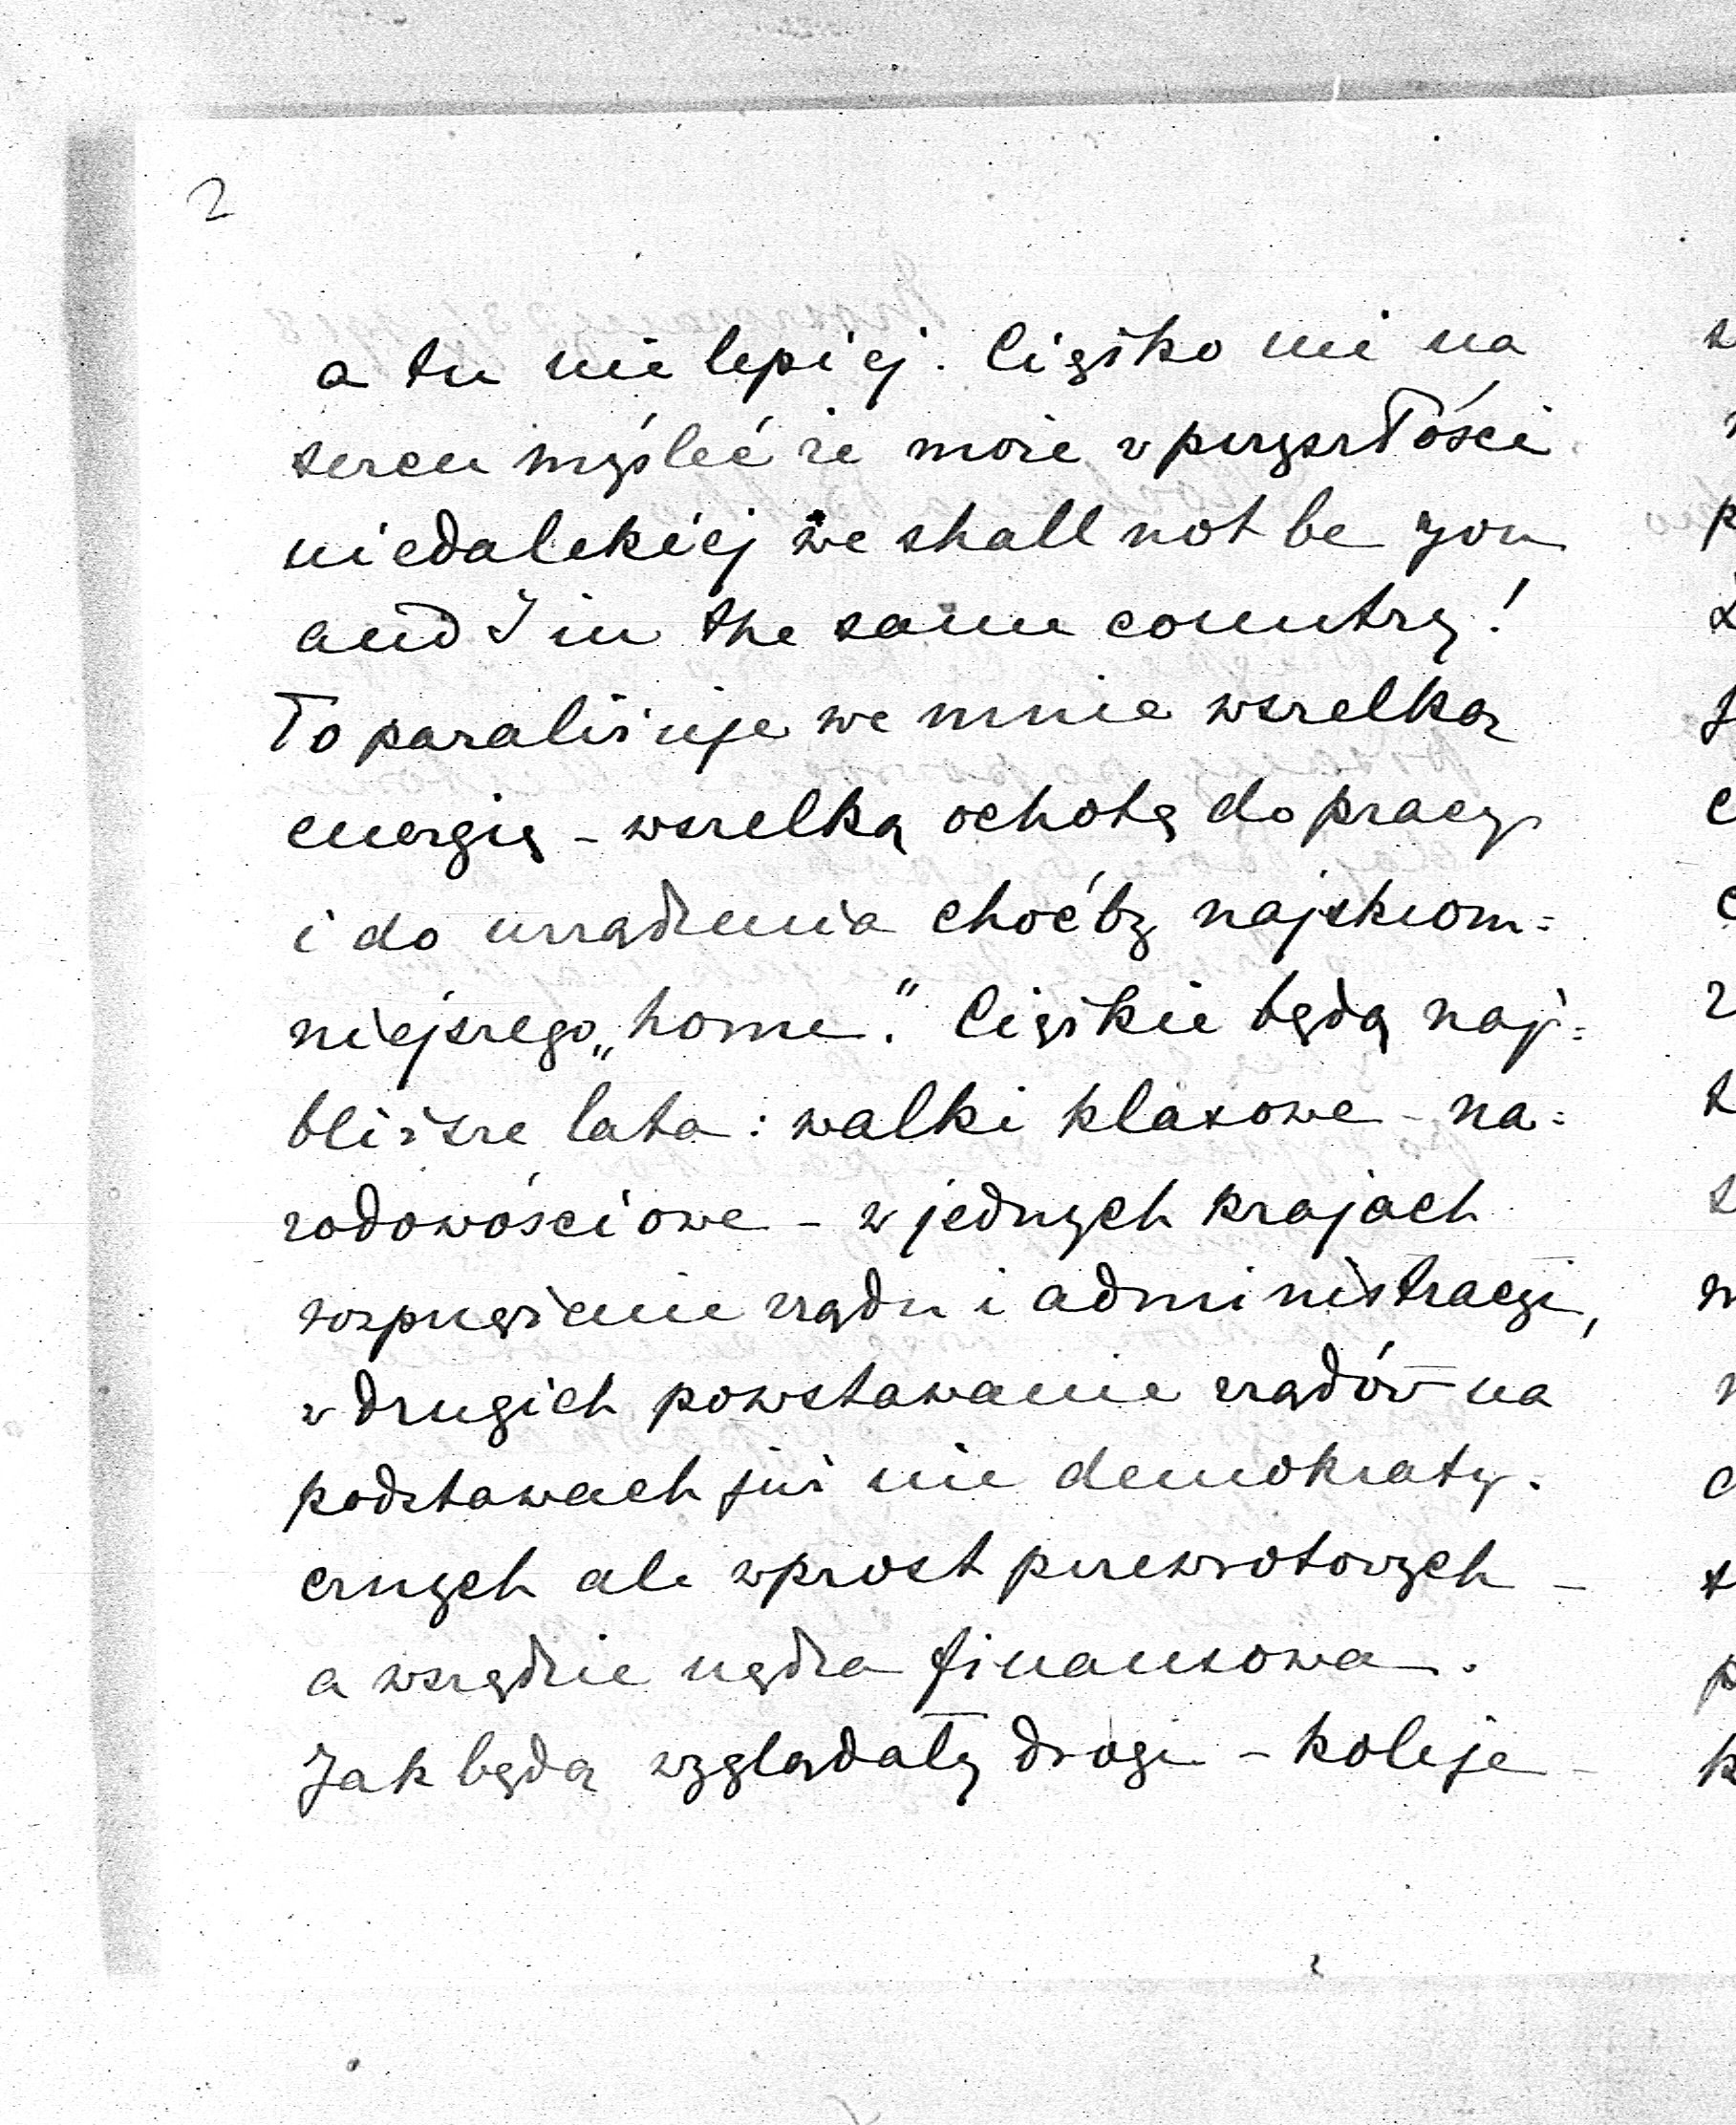 2
a tu nie lepiej. Ciężko mi na
sercu myśleć że może w przyszłości
niedalekiej we shall not be you
and I in the same country!
To paraliżuje we mnie wszelką
energię - wszelką ochotę do pracy
i do urządzenia choćby najskrom=
niejszego „home". Ciężkie będą naj=
bliższe lata: walki klasowe - na=
rodowościowe - w jednych krajach
rozprężenie rządu i administracyi,
w drugich powstawanie rządów na
podstawach już nie demokraty-
cznych ale wprost przewrotowych -
a wszędzie nędza finansowa.
Jak będą wyglądały drogi - koleje -